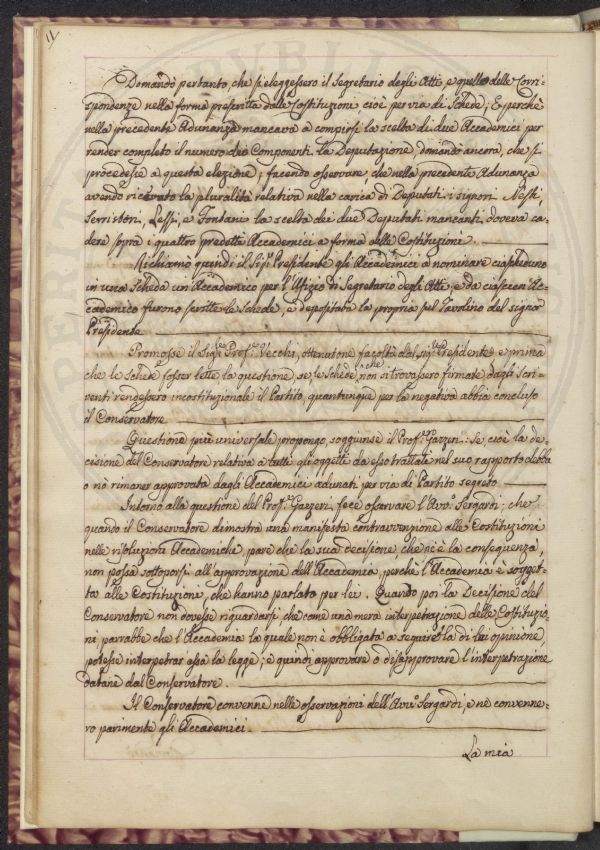 11
Domandò pertanto, che si eleggessero il Segretario degli Atti, e quello delle Corri-
spondenze nella forma prescritta dalle Costituzioni cioè per via di Schede; E perchè
nella precedente Adunanza mancava a compirsi la scelta di due Accademici per
render completo il numero dei Componenti la Deputazione, domandò ancora, che si
procedesse a questa elezione; facendo osservare che nella precedente Adunanza
avendo ricevuto la pluralità relativa nella carica di Deputati i signori Nesti,
Serristori, Lessi, e Fontani la scelta dei due Deputati mancanti doveva ca-
dere sopra i quattro predetti Accademici a forma delle Costituzioni.
Richiamò quindi il Sigr. Presidente gli Accademici a nominare ciascheduno
in una Scheda un Accademico per l'Ufizio di Segretario degli Atti, e da ciascun Ac-
cademico furono scritte le Schede, e depositata la propria sul Tavolino del signor
Presidente.
Promosse il Sigre. Profr. Vecchi, ottenutone facoltà dal sigre. Presidente e prima
che le schede fosser lette la questione, se le Schede che non si trovassero firmate dagli Scri-
venti rendessero incostituzionale il Partito, quantunque per la negativa abbia concluso
il Conservatore.
Questione più universale propongo, soggiunse il Profr. Gazzeri: Se cioè la de-
cisione del Conservatore relativa a tutti gli oggetti da esso trattati nel suo rapporto debba
o nò rimaner approvata dagli Accademici adunati per via di Partito segreto.
Intorno alla questione del Profr. Gazzeri fece osservare l'Avvo. Sergardi; che
quando il Conservatore dimostra una manifesta contravvenzione alle Costituzioni
nelle risoluzioni Accademiche, pare che la sua decisione che ne è la conseguenza,
non possa sottoporsi all'approvazione dell'Accademia, perchè l'Accademia è sogget-
ta alle Costituzioni, che hanno parlato per lei. Quando poi la Decisione del
Conservatore non dovesse riguardarsi che come una mera interpetrazione delle Costituzio-
ni parrebbe che l'Accademia la quale non è obbligata a seguire la di lui opinione,
potesse interpetrar essa la legge; e quindi approvare o disapprovare l'interpetrazione
datane dal Conservatore.
Il Conservatore convenne nelle osservazioni dell'Avvo. Sergardi, e ne convenne-
ro parimente gli Accademici.
La mia